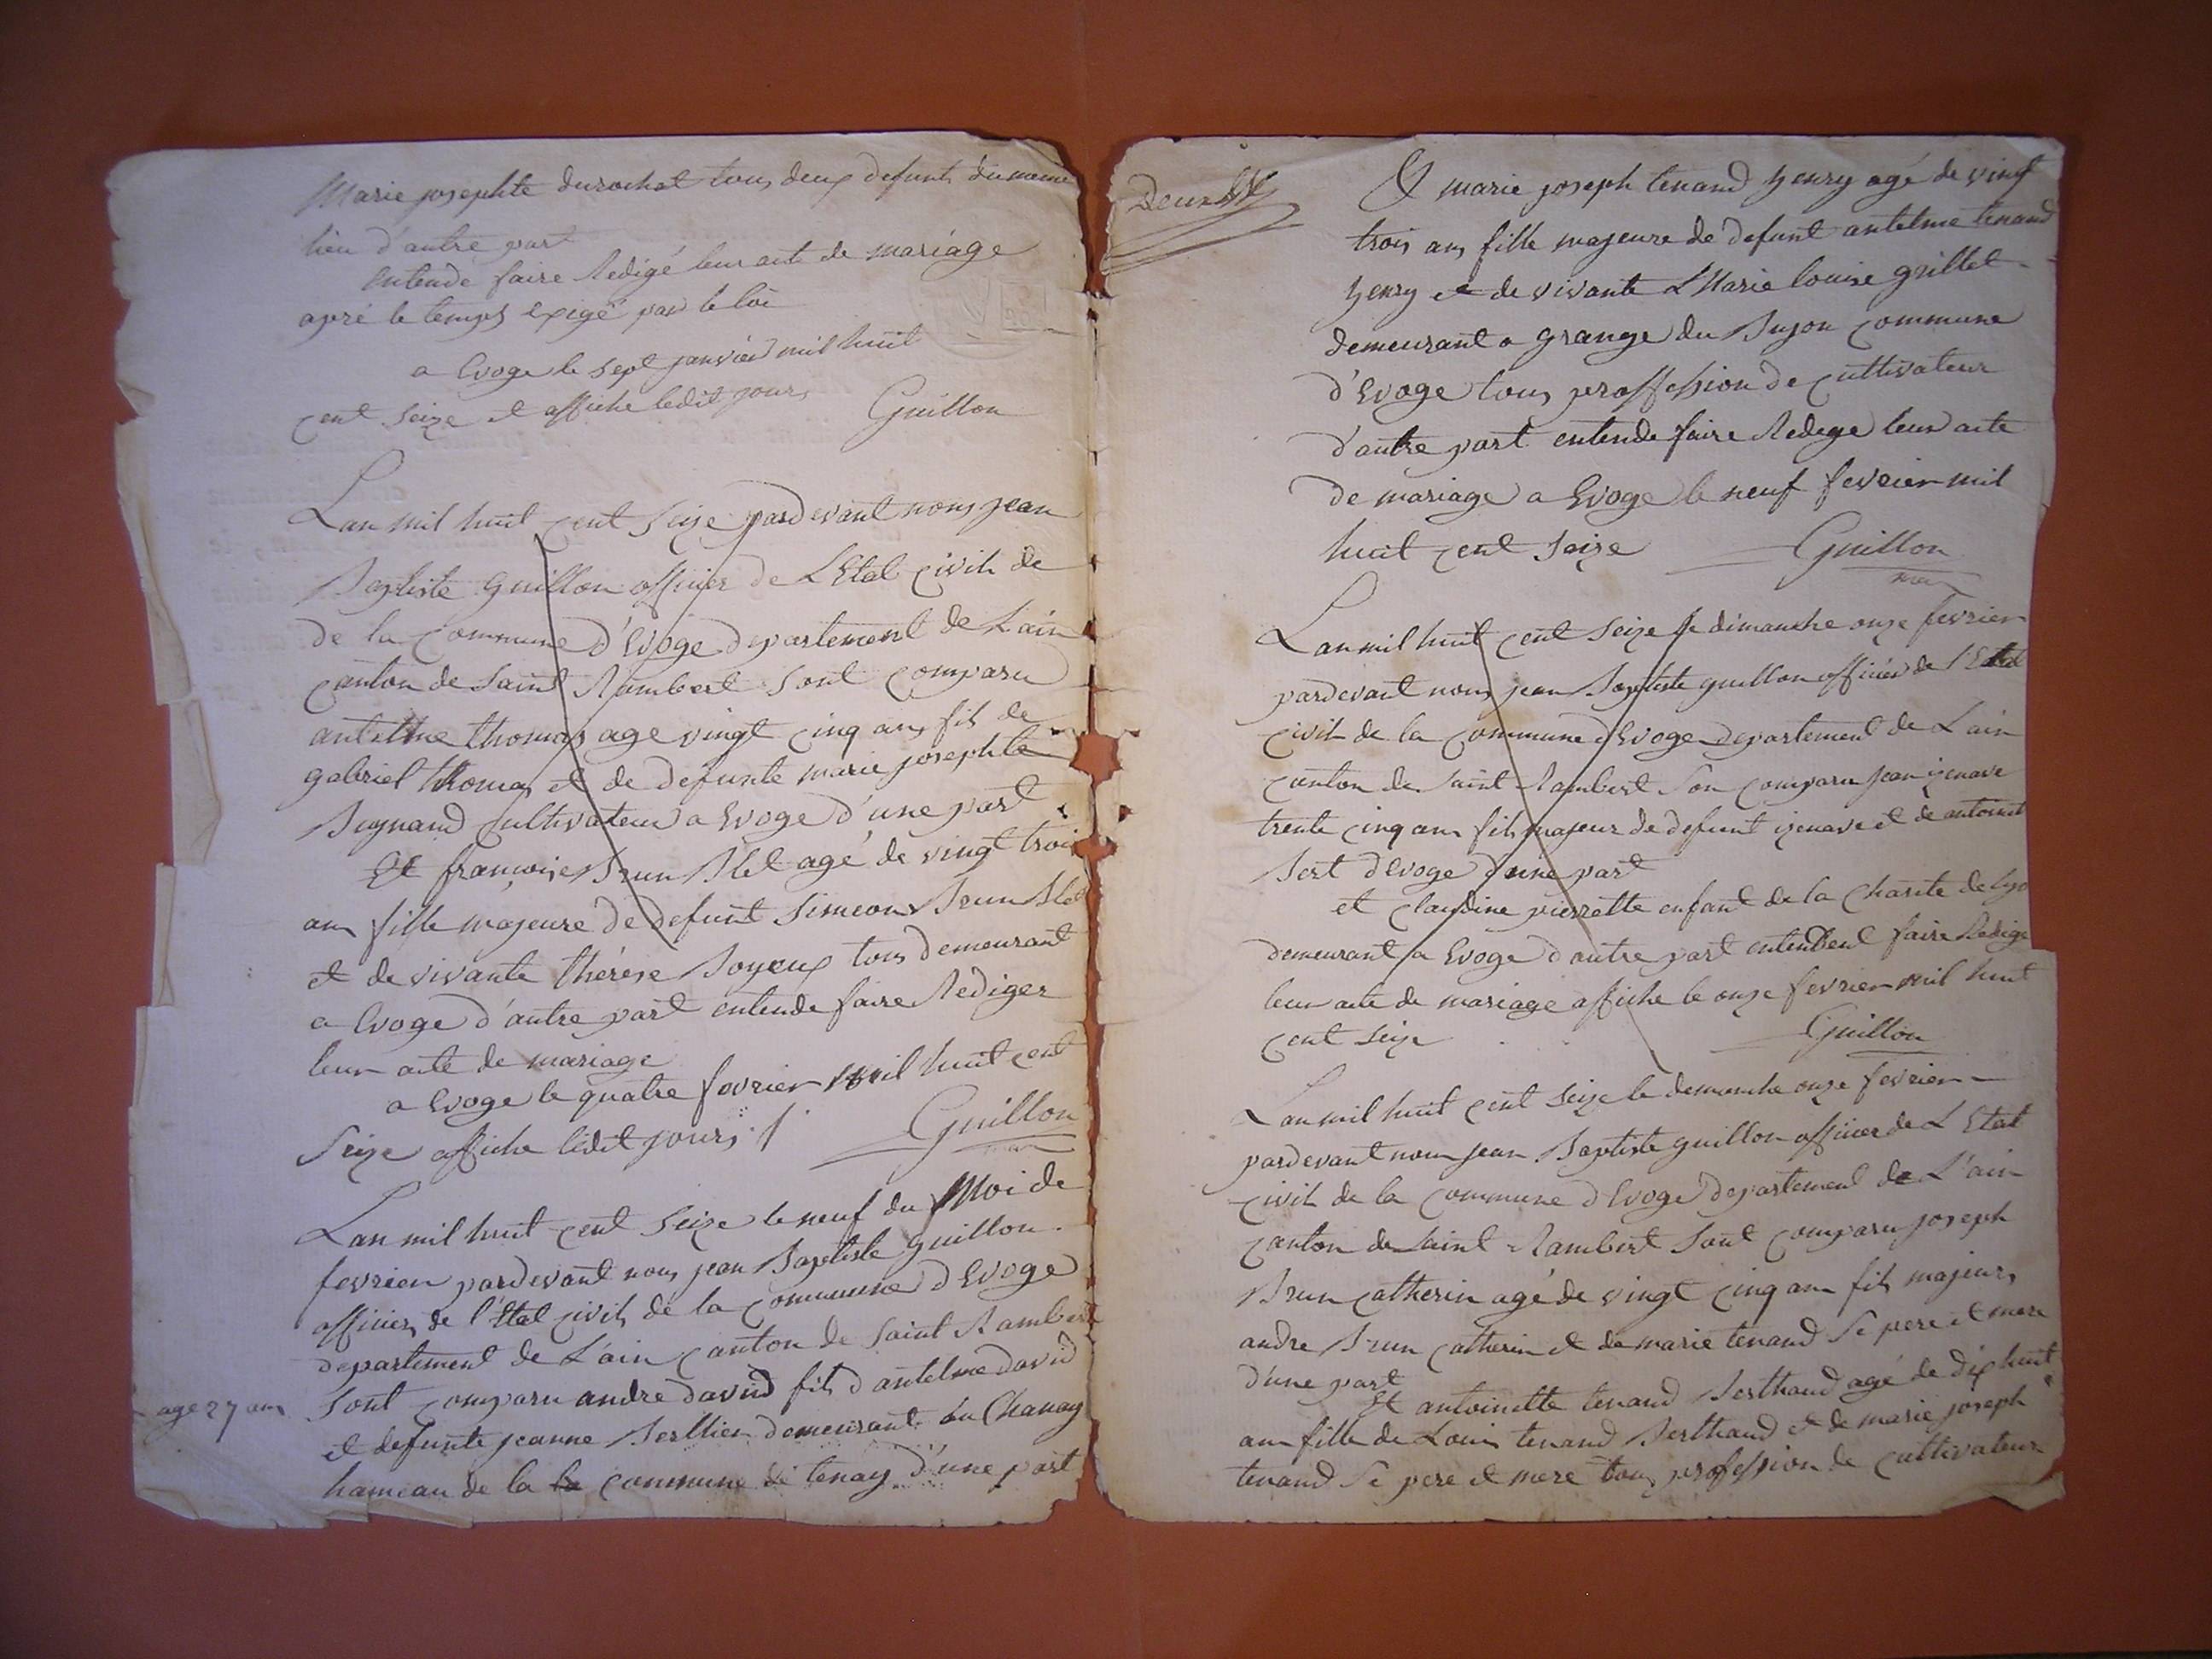 Marie josephte durochat tous deux defunts du meme
lieu d'autre part
entende faire Redigé leur acte de mariage
apré le temps exigé par le loi
a Evoge le sept janvier mil huit
cent seize et affiche ledit jours
Guillon
Lan mil huit cent seize pardevant nous jean
Baptiste Guillon officier de L'Etat civil de
de la Commune d'Evoge departement de Lain
canton de Saint Rambert sont comparu
antelme thomas age vingt cinq ans fils de
gabriel thomas et de defunte marie josephte
cultivateur a Evoge d'une part
Et françoise Brun agé de vingt trois
ans fille majeure de defunt Simeon Brun
et de vivante thérése Joyeux tous demeurant
a Evoge d'autre part entende faire Rediger
leur acte de mariage
a Evoge le quatre fevrier mil huit cent
Seize affiche ledit jours
Guillon
Lan mil huit cent Seize le neuf du Moi de
fevrier pardevant nous jean Baptiste Guillon
officier de l'Etat civil de la commune d'Evoge
departement de L'ain canton de Saint Rambert
age 27 ans
Sont comparu andre david fils d'antelme david
et defunte jeanne demeurant au Chanay
hameau de la la commune de tenay d'une part
Deux
Et marie joseph tenand henry agé de vingt
trois ans fille majeure de defunt antelme tenand
henry et de vivante Marie louise grillet
demeurant a grange du commune
d'Evoge tous proffession de cultivateur
d'autre part entende faire Redege leur acte
de mariage a Evoge le neuf fevrier mil
huit cent seize
Guillon
Lan mil huit cent Seize le dimanche onze fevrier
pardevant nous jean Baptiste guillon officier de l'Etat
civil de la commune d'Evoge departement de Lain
canton de Saint Rambert Son comparu jean
trente cinq ans fils majeur de defunt et de antoinette
d'Evoge d'une part
et claudine pierrette enfant de la charite de lyo
demeurant a Evoge d'autre part entendent faire Redige
leur acte de mariage affiche le onze fevrier mil huit
cent seize
Guillon
Lan mil huit cent seize le demanche onze fevrier
pardevant nous jean Baptiste guillon officier de L'Etat
civil de la commune d'Evoge departement de L'ain
canton de Saint Rambert Sont comparu joseph
Brun catherin agé de vingt cinq ans fils majeurs
andre Brun catherin et de marie tenand Se pere et mere
d'une part
Et antoinette tenand Berthaud agé de dix huit
ans fille de Louis tenand Berthaud et de marie joseph
tenand Se pere et mere tous profession de cultivateur